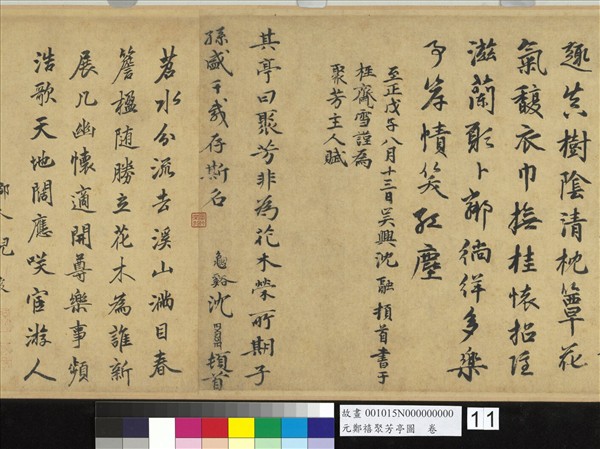 趣真樹陰清枕簟花
氣馥衣巾撫桂懷招隱
滋蘭聊卜鄰徜徉多樂
事岸幘笑紅塵
至正戊子八月十三日吳興沈融頓首書于
桎齋雪謹為
聚芳主人賦
其亭曰聚芳非為花木榮所期子
孫盛千載存斯名
沈 頓首
苕水分流去溪山滿目春
簷楹随勝立花木為誰新
展几幽懷適開尊樂事頻
浩歌天地闊應咲宦游人
故畫 001015N000000000
元鄭禧聚芳亭圖 卷
11